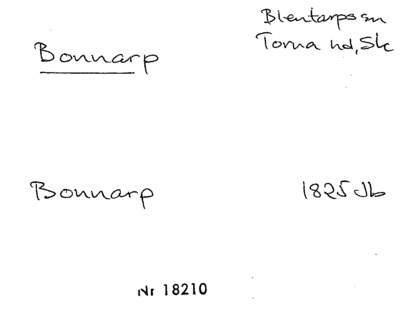 Blentarps sn
Bonnarp
Torna hd, Sk
Bonnarp 1825 Jb
Nr 18210